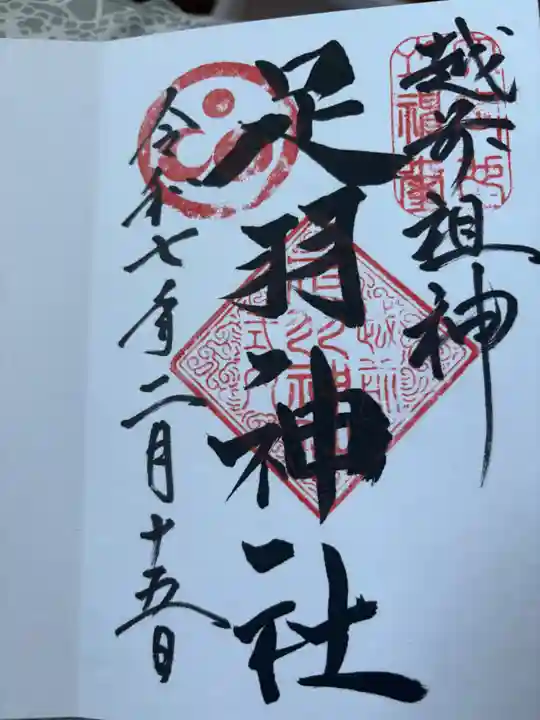 越前祖神
足羽神社
令和七年二月十五日